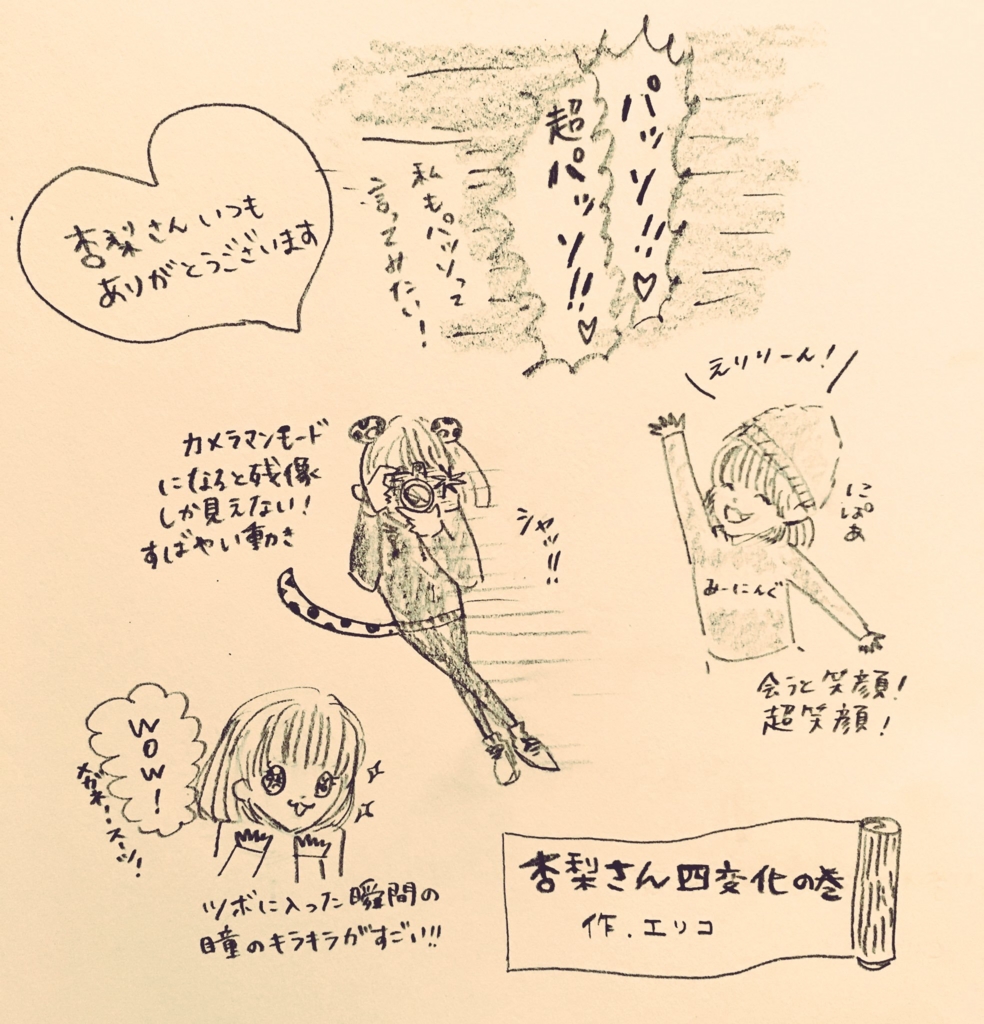 パッソ!!♡
超パッソ!!♡
私もパッソって
言ってみたい!
杏梨さんいつも
ありがとうございます
えりりーん!
にぱぁ
みーにんぐ
会うと笑顔!
超笑顔!
カメラマンモード
になると残像
しか見えない!
すばやい動き
シャッ!!
WOW!
メガネ・スーツ!
ツボに入った瞬間の
瞳のキラキラがすごい!!
杏梨さん四変化の巻
作.エリコ